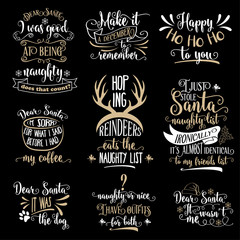 Dear Santa
I was good
AT BEING
naughty
does that count?
Make it
A DECEMBER TO
remember
Happy
HO HO HO
to you
Dear Santa
I'M SORRY
FOR WHAT I SAID
BEFORE I HAD
my coffee
HOP
ING
REINDEERS
eats the
NAUGHTY LIST
I JUST
stole
Santa
naughty list
IRONICALLY
IT'S ALMOST IDENTICAL
to my friends list
Dear Santa
IT WAS
the dog
?
naughty or nice
I HAVE OUTFITS
for both
Dear Santa
It wasn't
me